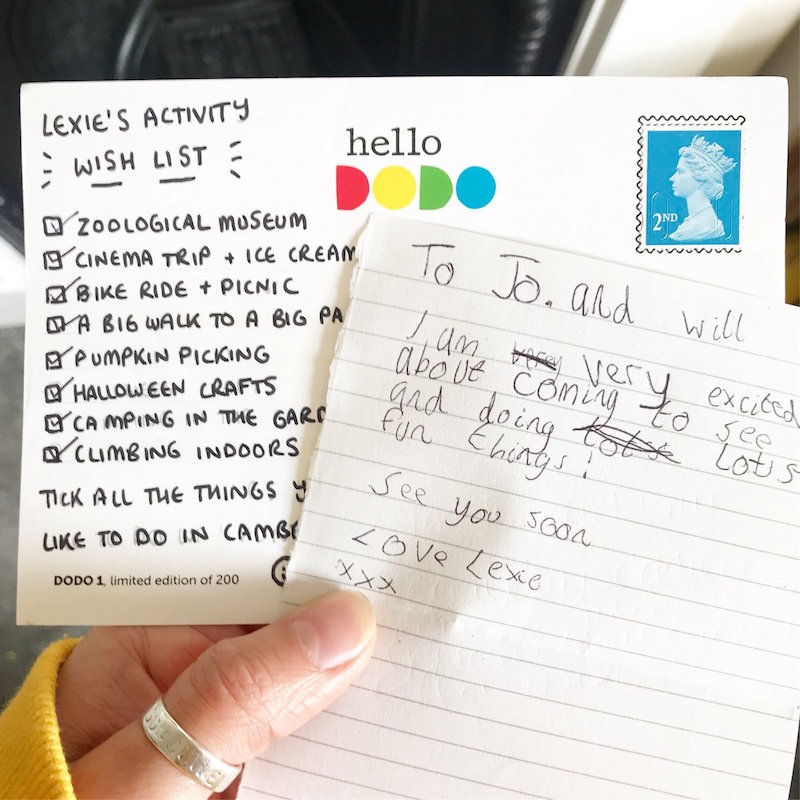 LEXIE'S ACTIVITY
WISH LIST
ZOOLOGICAL MUSEUM
CINEMA TRIP + ICE CREAM
BIKE RIDE + PICNIC
A BIG WALK TO A BIG PA
PUMPKIN PICKING
HALLOWEEN CRAFTS
CAMPING IN THE GARD
CLIMBING INDOORS
TICK ALL THE THINGS Y
LIKE TO DO IN CAMB
DODO 1, limited edition of 200
hello
DODO
2ND
To Jo. and will
I am very excited
about coming to see
and doing Lots
fun things!
See you soon
Love Lexie
xxx